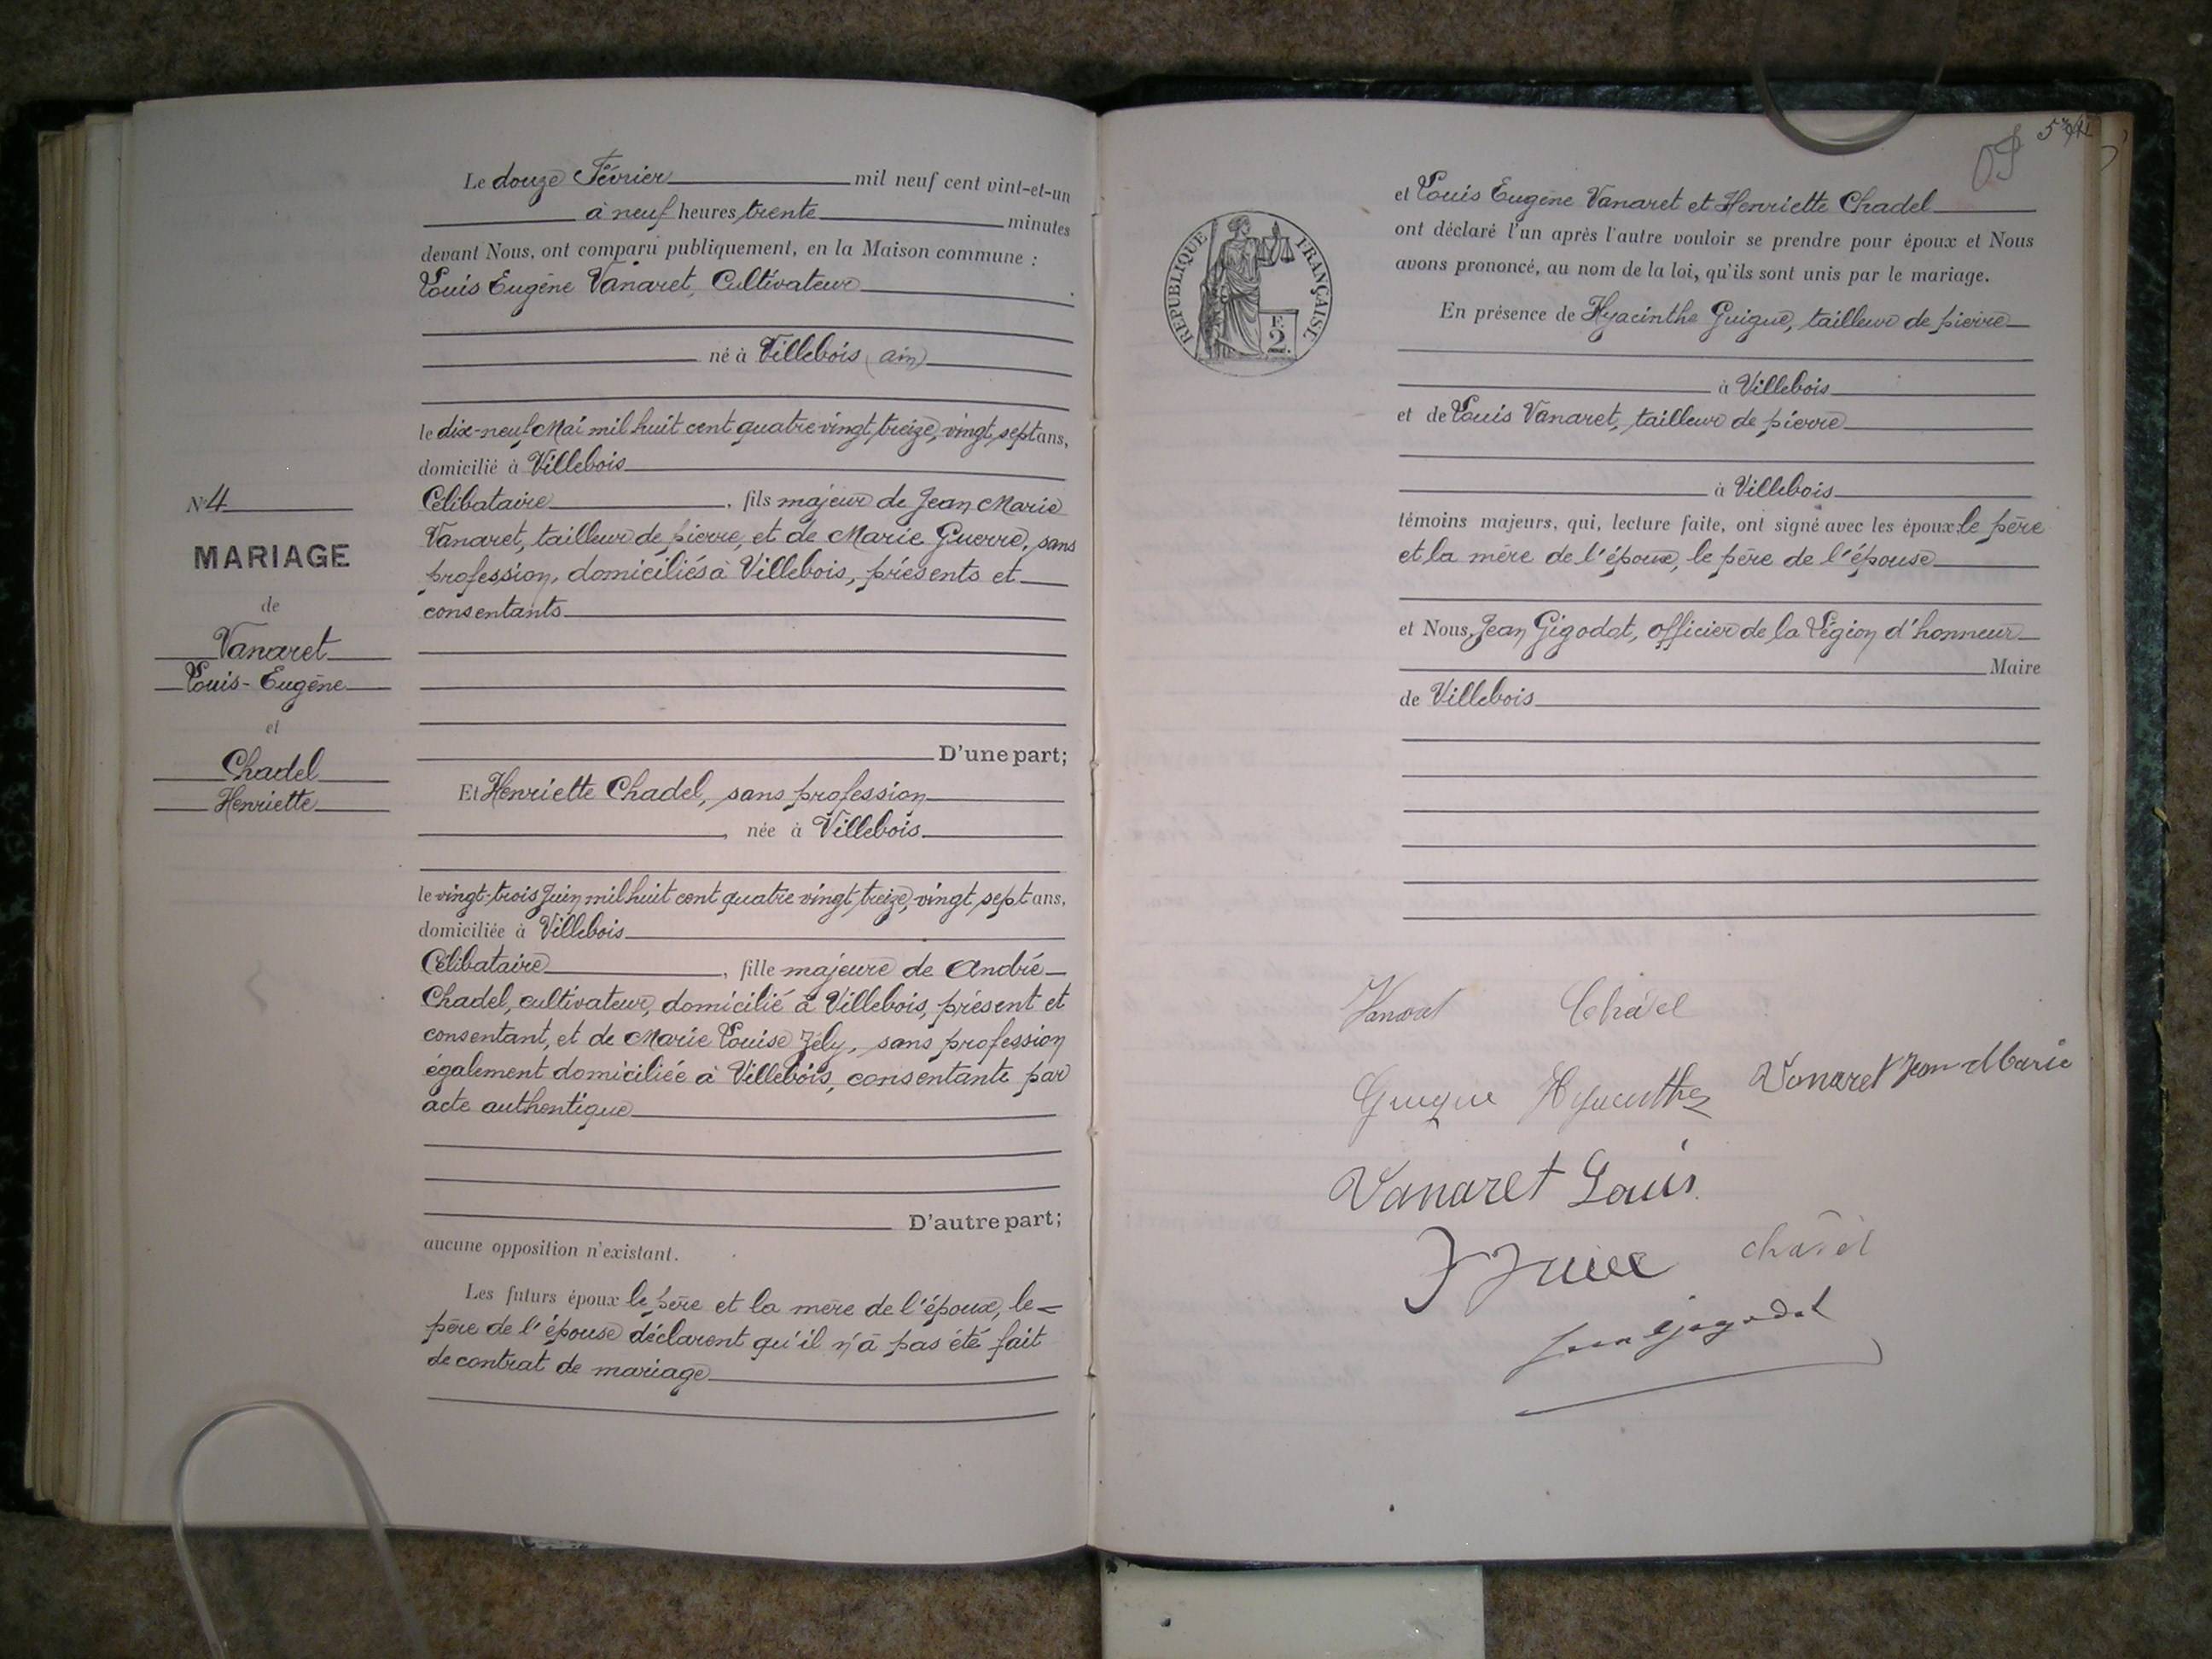 Le douze Février mil neuf cent vint-et-un
à neuf heures trente minutes
devant Nous, ont comparu publiquement, en la Maison commune :
Louis Eugène Vanaret, Cultivateur
né à Villebois (ain)
le dix-neuf Mai mil huit cent quatre vingt treize, vingt sept ans,
domicilié à Villebois
Célibataire, fils majeur de Jean Marie
Vanaret, tailleur de pierre, et de Marie Guerre, sans
profession, domiciliés à Villebois, présents et
consentants
D'une part;
Et Henriette Chadel, sans profession
, née à Villebois
le vingt-trois Juin mil huit cent quatre vingt treize, vingt sept ans,
domiciliée à Villebois
Célibataire, fille majeure de André
Chadel, cultivateur, domicilié à Villebois, présent et
consentant, et de Marie Louise Jély, sans profession
également domiciliée à Villebois, consentante par
acte authentique
D'autre part;
aucune opposition n'existant.
Les futurs époux le père et la mère de l'époux, le
père de l'épouse déclarent qu'il n'a pas été fait
de contrat de mariage
N° 4
MARIAGE
de
Vanaret
Louis-Eugène
et
Chadel
Henriette
RÉPUBLIQUE FRANÇAISE
F.
2.
et Louis Eugène Vanaret et Henriette Chadel
ont déclaré l'un après l'autre vouloir se prendre pour époux et Nous
avons prononcé, au nom de la loi, qu'ils sont unis par le mariage.
En présence de Hyacinthe Guigue, tailleur de pierre
à Villebois
et de Louis Vanaret, tailleur de pierre
à Villebois
témoins majeurs, qui, lecture faite, ont signé avec les époux le père
et la mère de l'époux, le père de l'épouse
et Nous, Jean Gigodot, officier de la Légion d'honneur
Maire
de Villebois
Vanaret Chadel
Guigue Hyacinthe Vanaret Jean-Marie
Vanaret Louis
chadel
Jean Gigodot